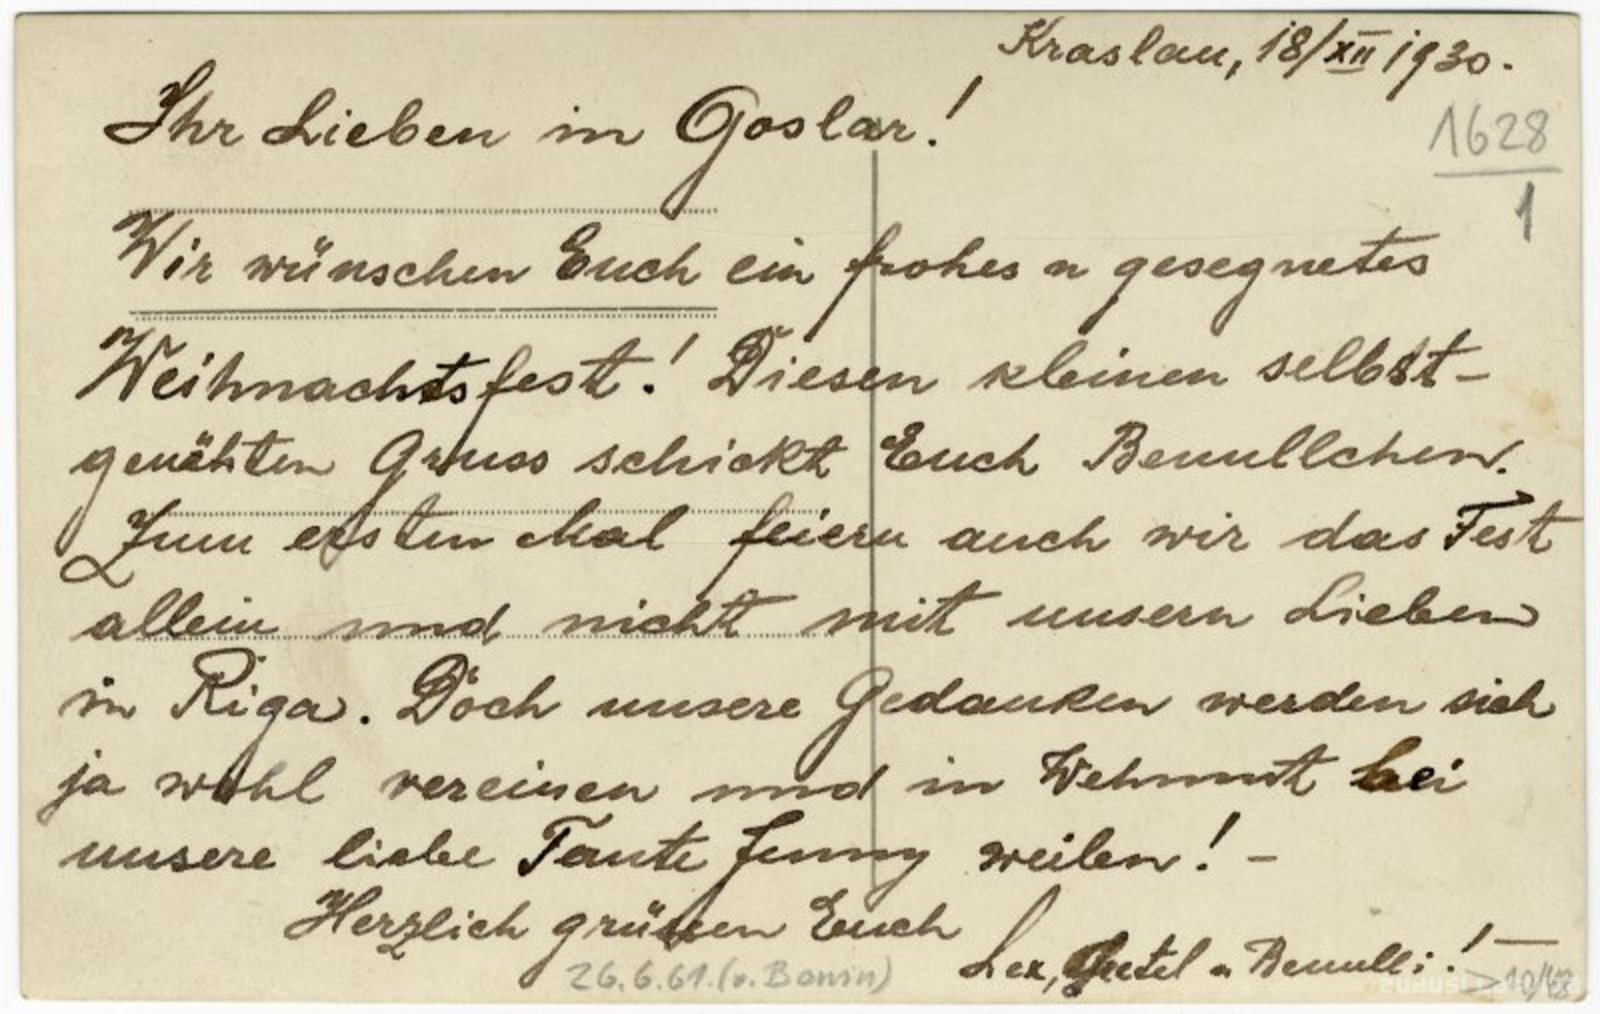 Kraslau, 18/XII 1930.
1628
1
Ihr Lieben in Goslar!
Wir wünschen Euch ein frohes u gesegnetes
Weihnachtsfest! Diesen kleinen selbst-
genähten Gruss schickt Euch Benullchen.
Zum ersten Mal feiern auch wir das Fest
allein und nicht mit unsern Lieben
in Riga. Doch unsere Gedanken werden sich
ja wohl vereinen und in Wehmut bei
unsere liebe Tante Jenny weilen! –
Herzlich grüssen Euch
Lex, Gretel u Benulli! –
26.6.61. (v. Bonin)